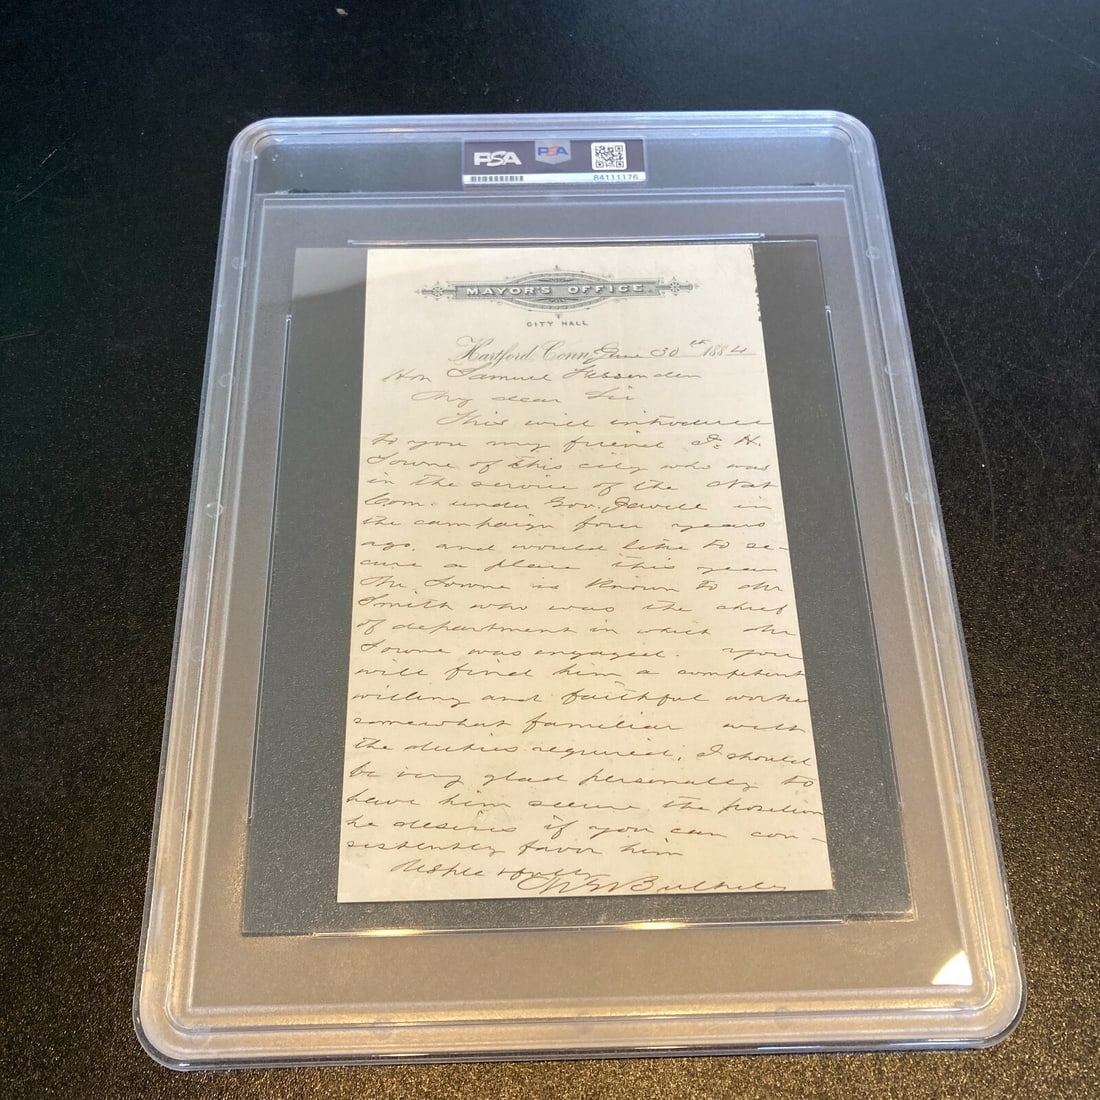 PSA
PSA
84111176
MAYOR'S OFFICE.
CITY HALL
Hartford, Conn, June 30th 1884
Hon Samuel Fessenden
My dear Sir
This will introduce
to you my friend J. H.
Towne of this city who was
in the service of the Nat
Com. under Gov. Jewell in
the campaign four years
ago, and would like to se-
cure a place this year
Mr Towne is known to Mr
Smith who was the chief
of department in which Mr
Towne was engaged. You
will find him a competent
willing and faithful worker
somewhat familiar with
the duties required. I should
be very glad personally to
have him secure the position
he desires if you can con-
sistently favor him
Bulkeley